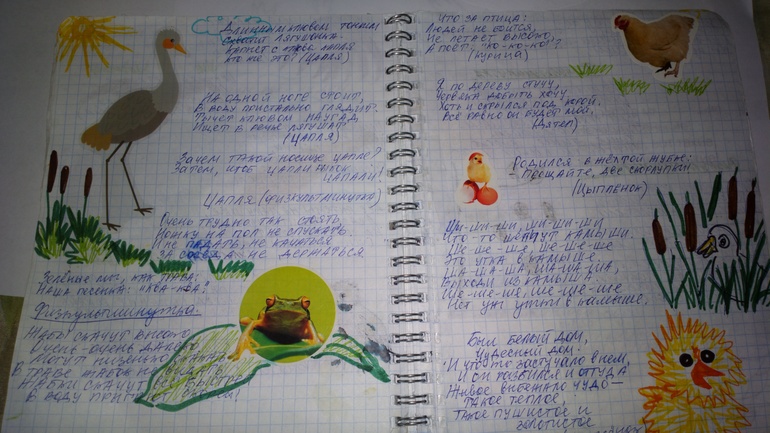 Длинным клювом тонким
Схватит лягушонка.
Капнет с клюва капля
Кто же это? (Цапля)
На одной ноге стоит,
В воду пристально глядит.
Тычет клювом наугад
Ищет в речке лягушат.
(Цапля)
Зачем такой носище цапле?
Затем, чтоб цапли
цапали!
Цапля (физкультминутка)
Очень трудно так стоять,
Ножку на пол не спускать.
И не падать, не качаться
За соседа не держаться
Зелёные мы, как трава:
Наша песенка: "Ква-ква!
Физкультминутка.
Жабы скачут высоко
Очень-очень далеко.
В траве жабок не видать
Жабки скачут все быстро
В воду
Что за птица:
Людей не боится,
Не летает высоко,
А поёт, "ко-ко-ко!"?
(курица)
Я по дереву стучу,
Червяка добыть хочу
Хоть и скрылся под корой,
Всё равно он будет мой,
(Дятел)
Родился в жёлтой шубке:
- Прощайте, две скорлупки!
(Цыплёнок)
Ши-ши-ши, ши-ши-ши
Что-то шепчут камыши.
Ше-ше-ше, ше-ше-ше
Это утка в камыше.
Ша-ша-ша, ша-ша-ша,
Выходи из камыша,
Ше-ше-ше, ше-ше-ше
Нет уж утки в камыше.
Был белый дом,
Чудесный дом,
И что-то застучало в нём,
И он разбился и оттуда
Живое выбежало чудо -
Такое тёплое,
Такое пушистое и
золотистое